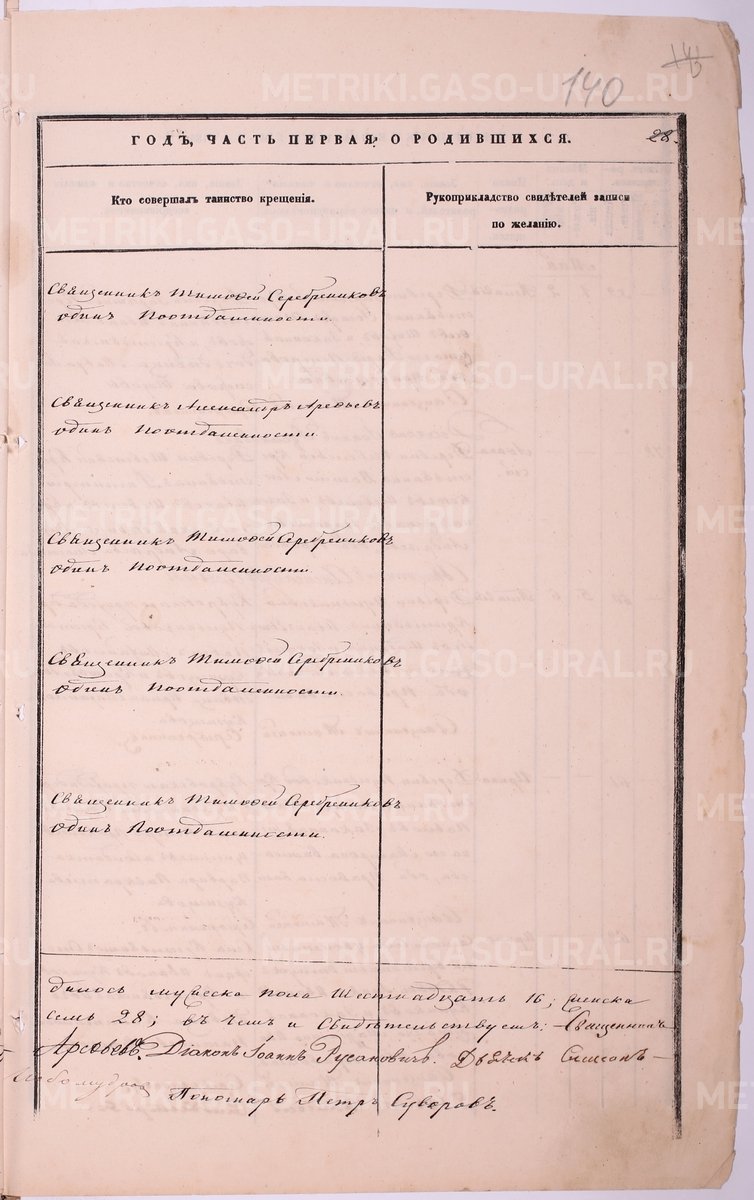 140
ГОДЪ, ЧАСТЬ ПЕРВАЯ, О РОДИВШИХСЯ.
28.
Кто совершалъ таинство крещенія.
Рукоприкладство свидѣтелей записи
по желанію.
Священникъ Тимофей Серебрениковъ
одинъ поотдаленности.
Священникъ Александръ Арефьевъ
одинъ поотдаленности.
Священникъ Тимофей Серебрениковъ
одинъ поотдаленности.
Священникъ Тимофей Серебрениковъ
одинъ поотдаленности.
Священникъ Тимофей Серебрениковъ
одинъ поотдаленности.
дилось мужеска пола Шестнадцать 16; женска
семь 28; въ чемъ и Свидѣтельствуемъ: Священникъ
Арефьевъ. Діаконъ Іоаннъ Русановичъ. Дьячекъ Симеонъ
Любомудровъ
Пономарь Петръ Суворовъ.
METRIKI.GASO-URAL.RU